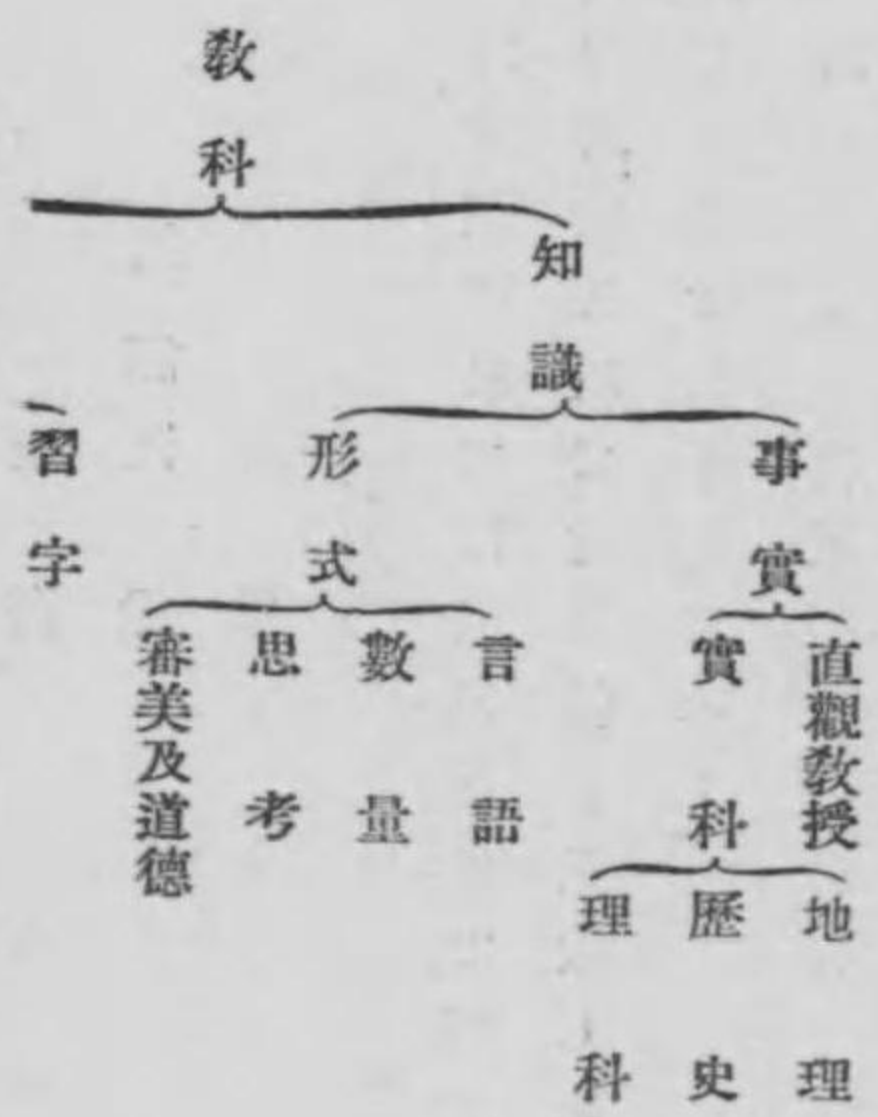 教科
知識
事實
直觀教授
實科
地理
歷史
理科
形式
言語
數量
思考
審美及道德
習字